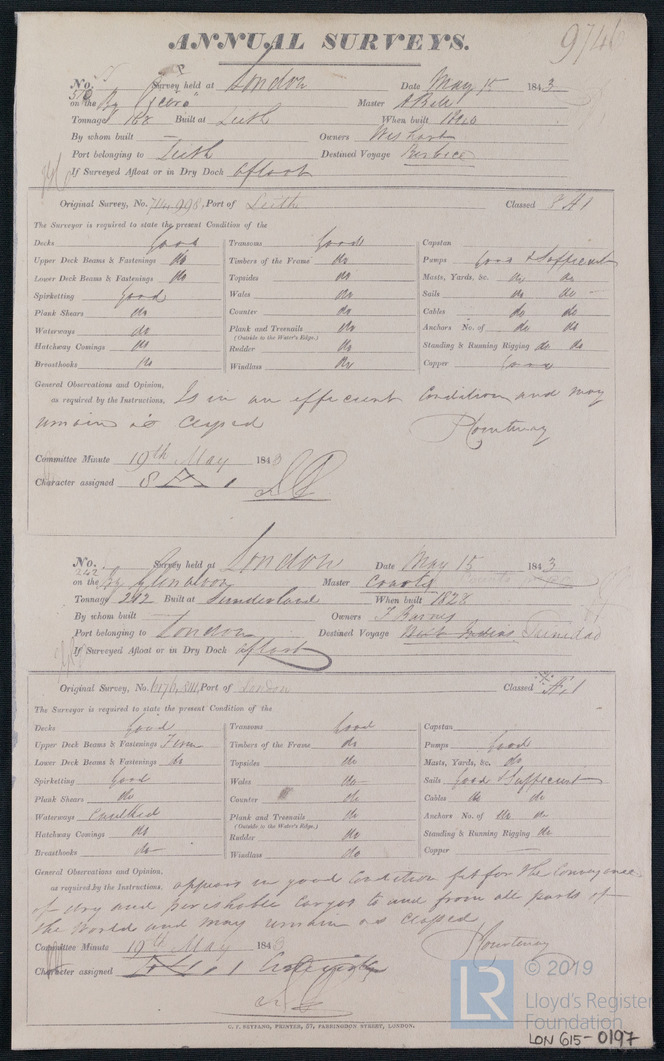 ANNUAL SURVEYS.
9746
No. Survey held at London Date May 15 1843
on the Bg Master A Bell
Tonnage 188 Built at Leith When built 1840
By whom built — Owners Wishart
Port belonging to Leith Destined Voyage Berbice
If Surveyed Afloat or in Dry Dock afloat
Original Survey, No. Port of Leith Classed 8 A 1
The Surveyor is required to state the present Condition of the
Decks Good Transoms Good Capstan
Upper Deck Beams & Fastenings do Timbers of the Frame do Pumps Good & Sufficient
Lower Deck Beams & Fastenings do Topsides do Masts, Yards, &c. do do
Spirketting Good Wales do Sails do do
Plank Shears do Counter do Cables do do
Waterways do Plank and Treenails do Anchors No. of do do
(Outside to the Water's Edge.)
Hatchway Comings do Rudder do Standing & Running Rigging do do
Breasthooks do Windlass do Copper Good
General Observations and Opinion,
as required by the Instructions, Is in an efficient Condition and may
remain as Classed
Courtenay
Committee Minute 19th May 1843
Character assigned 8 A 1
No. Survey held at London Date May 15 1843
242
on the Bg Glenalvon Master
Tonnage 242 Built at Sunderland When built 1828
By whom built — Owners T Barnes
Port belonging to London Destined Voyage West Indies Trinidad
If Surveyed Afloat or in Dry Dock afloat
Original Survey, No. Port of London Classed
The Surveyor is required to state the present Condition of the
Decks Good Transoms Good Capstan
Upper Deck Beams & Fastenings Firm Timbers of the Frame do Pumps Good
Lower Deck Beams & Fastenings do Topsides do Masts, Yards, &c. do
Spirketting Good Wales do Sails Good & Sufficient
Plank Shears do Counter do Cables do do
Waterways Caulked Plank and Treenails do Anchors No. of do do
(Outside to the Water's Edge.)
Hatchway Comings do Rudder do Standing & Running Rigging do
Breasthooks do Windlass do Copper —
General Observations and Opinion,
as required by the Instructions, appears in good Condition fit for the Conveyance
of dry and perishable Cargos to and from all parts of
the World and may remain as Classed
Courtenay
Committee Minute 19th May 1843
Character assigned
C. F. SEYFANG, PRINTER, 57, FARRINGDON STREET, LONDON.
LR
© 2019
Lloyd's Register
Foundation
LON 615-0197